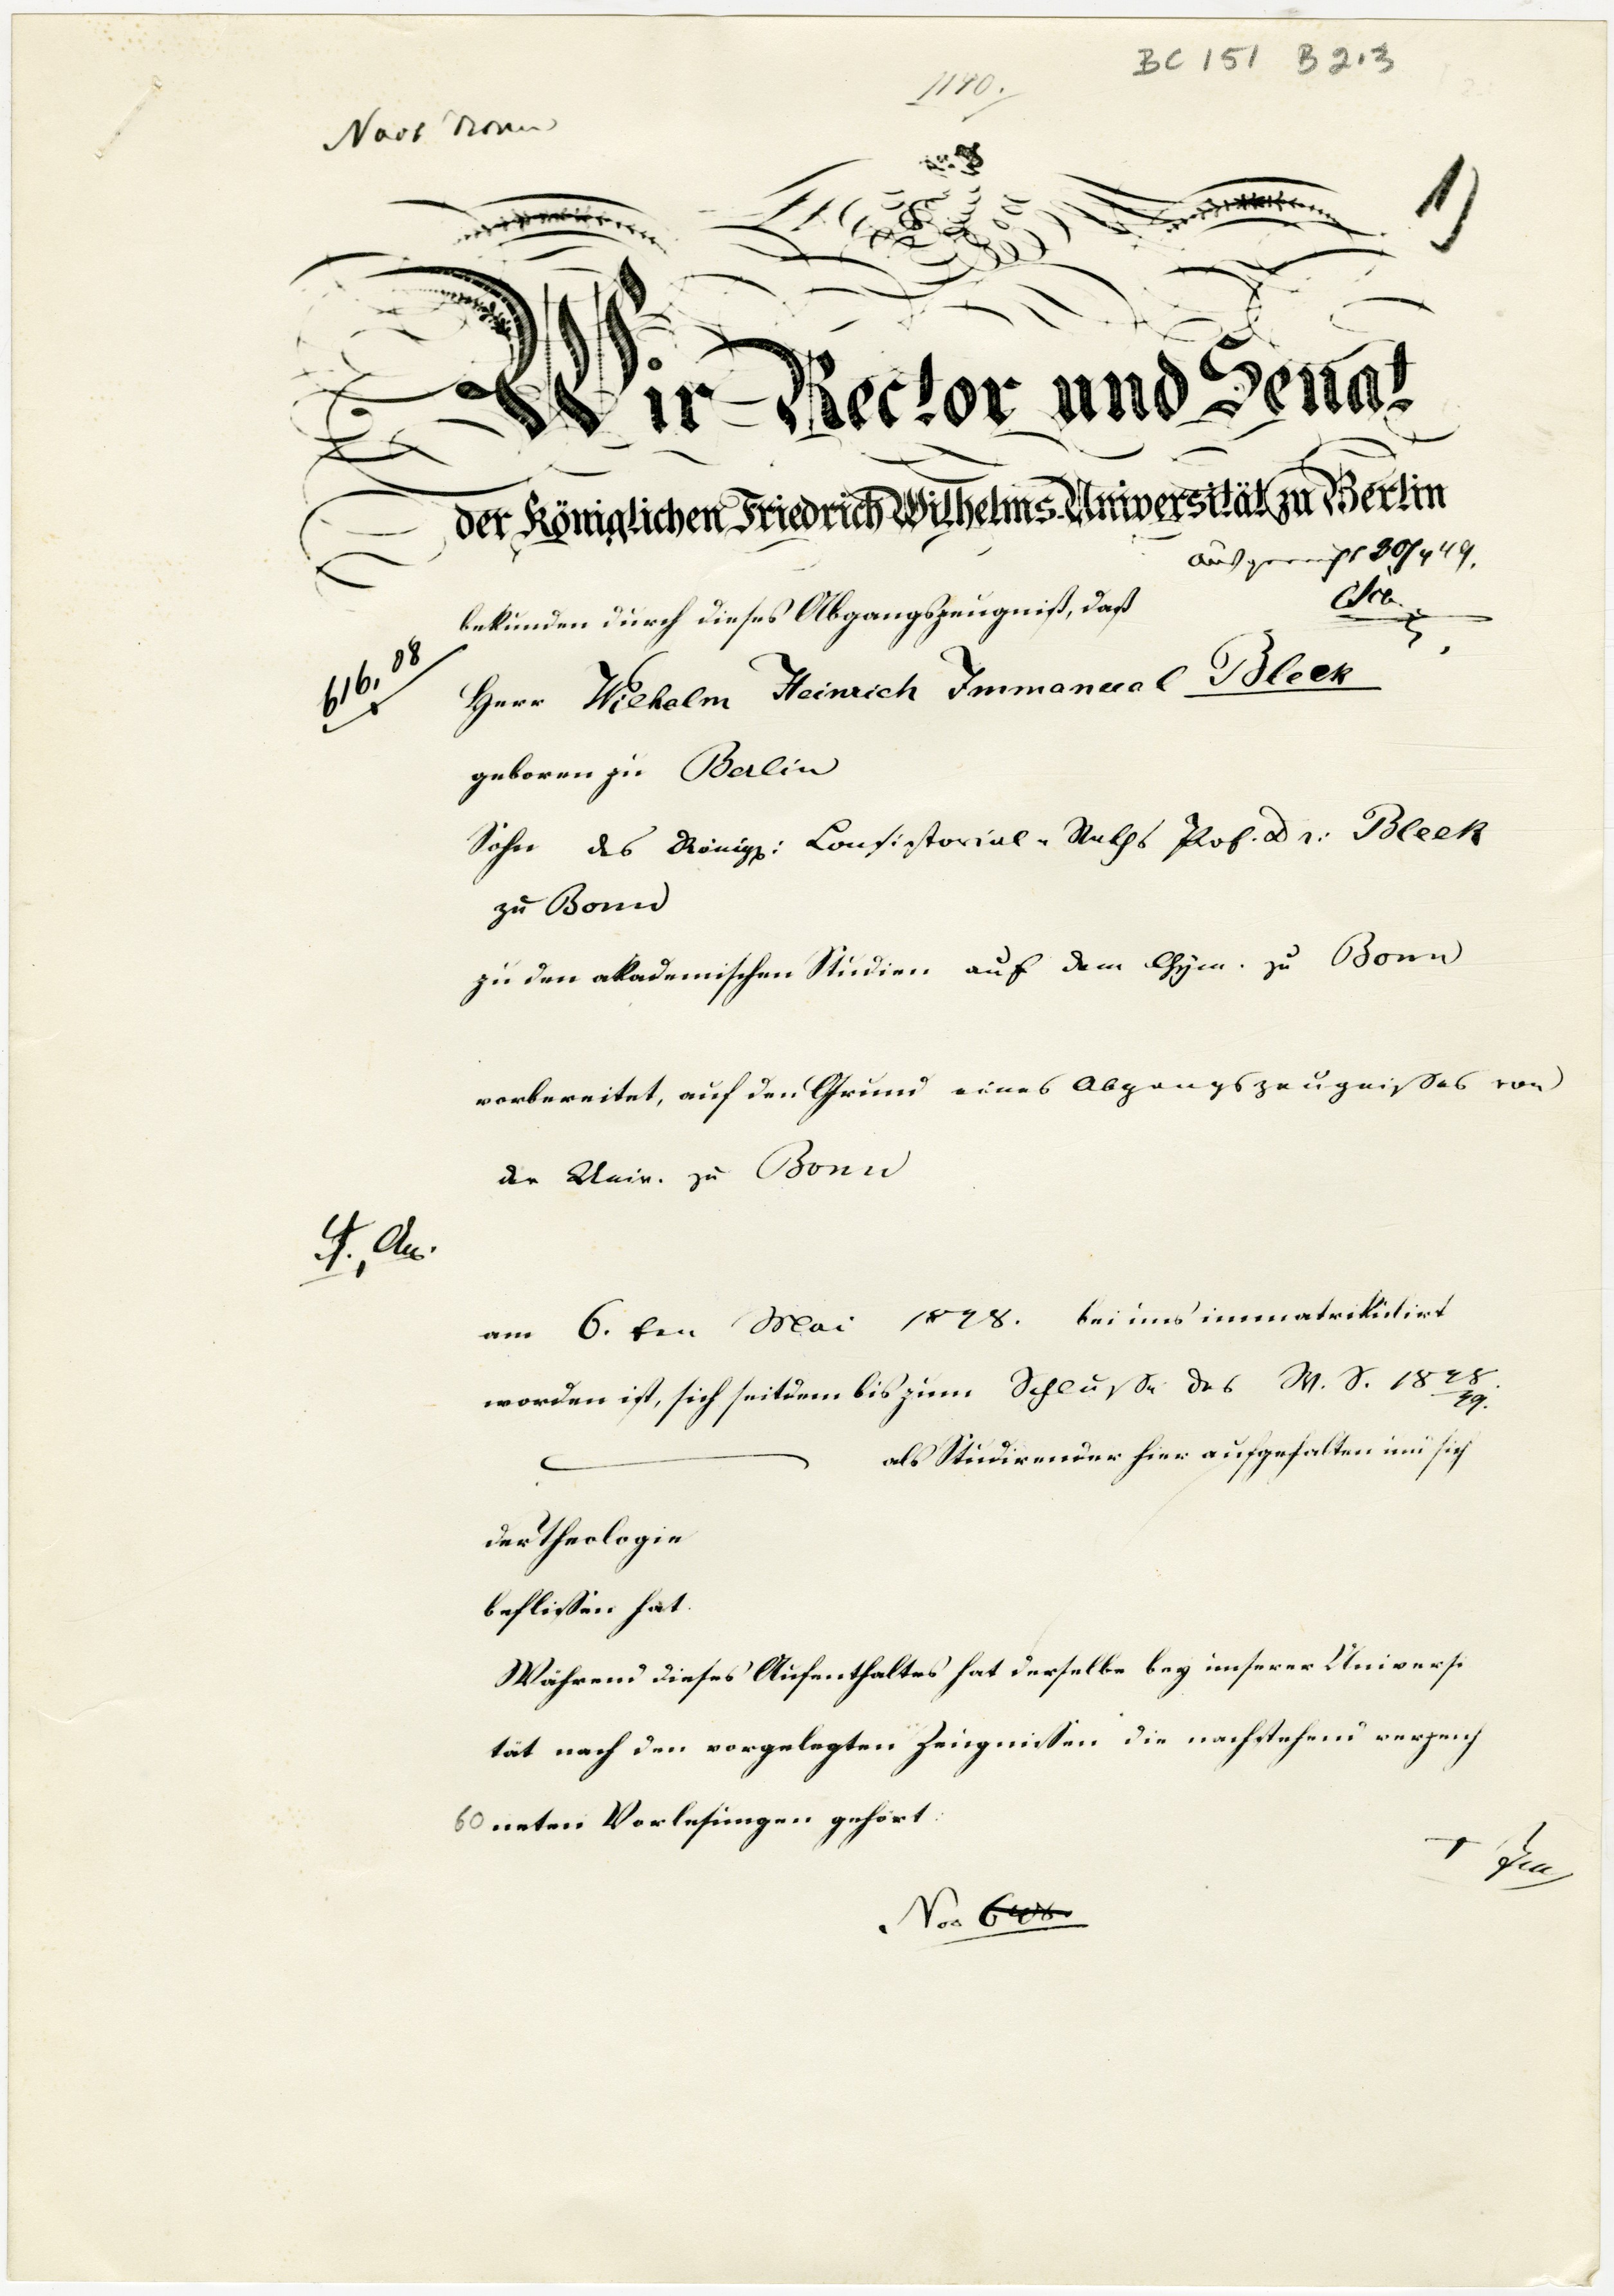 BC 151 B2.3
1190.
Nach Bonn
1)
Wir Rector und Senat
der Königlichen Friedrich Wilhelms-Universität zu Berlin
30/4 49.
bekunden durch dieses Abgangszeugniß, daß
Herr Wilhelm Heinrich Immanuel Bleek
geboren zu Berlin
Sohn des Königl: Consistorial-Raths Prof. Dr: Bleek
zu Bonn
zu den akademischen Studien auf dem Gym. zu Bonn
vorbereitet, auf den Grund eines Abgangszeugnisses von
der Univ. zu Bonn
am 6. ten Mai 1848. bei uns immatrikulirt
worden ist, sich seitdem bis zum Schlusse des W. S. 1848/49.
als Studirender hier aufgehalten und sich
der Theologie
beflissen hat.
Während dieses Aufenthaltes hat derselbe bey unserer Universi
tät nach den vorgelegten Zeugnissen die nachstehend verzeich
60 neten Vorlesungen gehört: